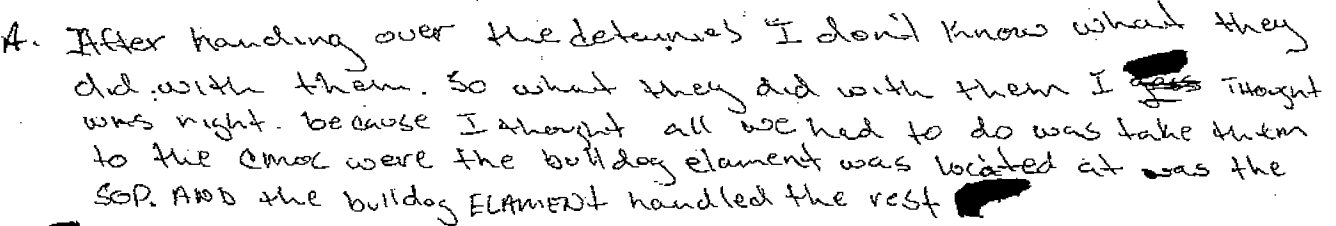 A. After handing over the detainies I don't know what they
did with them. So what they did with them I guess THought
was right. because I thought all we had to do was take them
to the CMOC were the bulldog elament was located at was the
SOP. AND the bulldog ELAMENT handled the rest